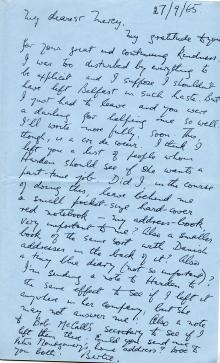 27/9/65
My dearest Mercy,
My gratitude to you
for your great and continuing kindness.
I was too disturbed by everything to
be applied and I suppose I shouldn't
have left Belfast in such haste. But
I just had to leave and you were
a darling for helping me so well.
I'll write more fully, soon. This
though, is a cri de coeur. I think I
left you a list of people whom
Harden should see if she wants a
part-time job. Did I, in the course
of doing this, leave behind me
a small pocket size hard-cover
red notebook - my address book
very important to me? Also a smaller
book of the same sort with Danish
addresses in the back of it? Also
a tiny blue diary (not so important)?
I'm sending a note to Harden to
the same effect to see if I left it
anywhere in her company, but she
may not answer me! Also a note
to Bob McCall's secretary, to see if I
left it there. Could you send me
Peter Montgomery's address? Love to
you both! Bertie.